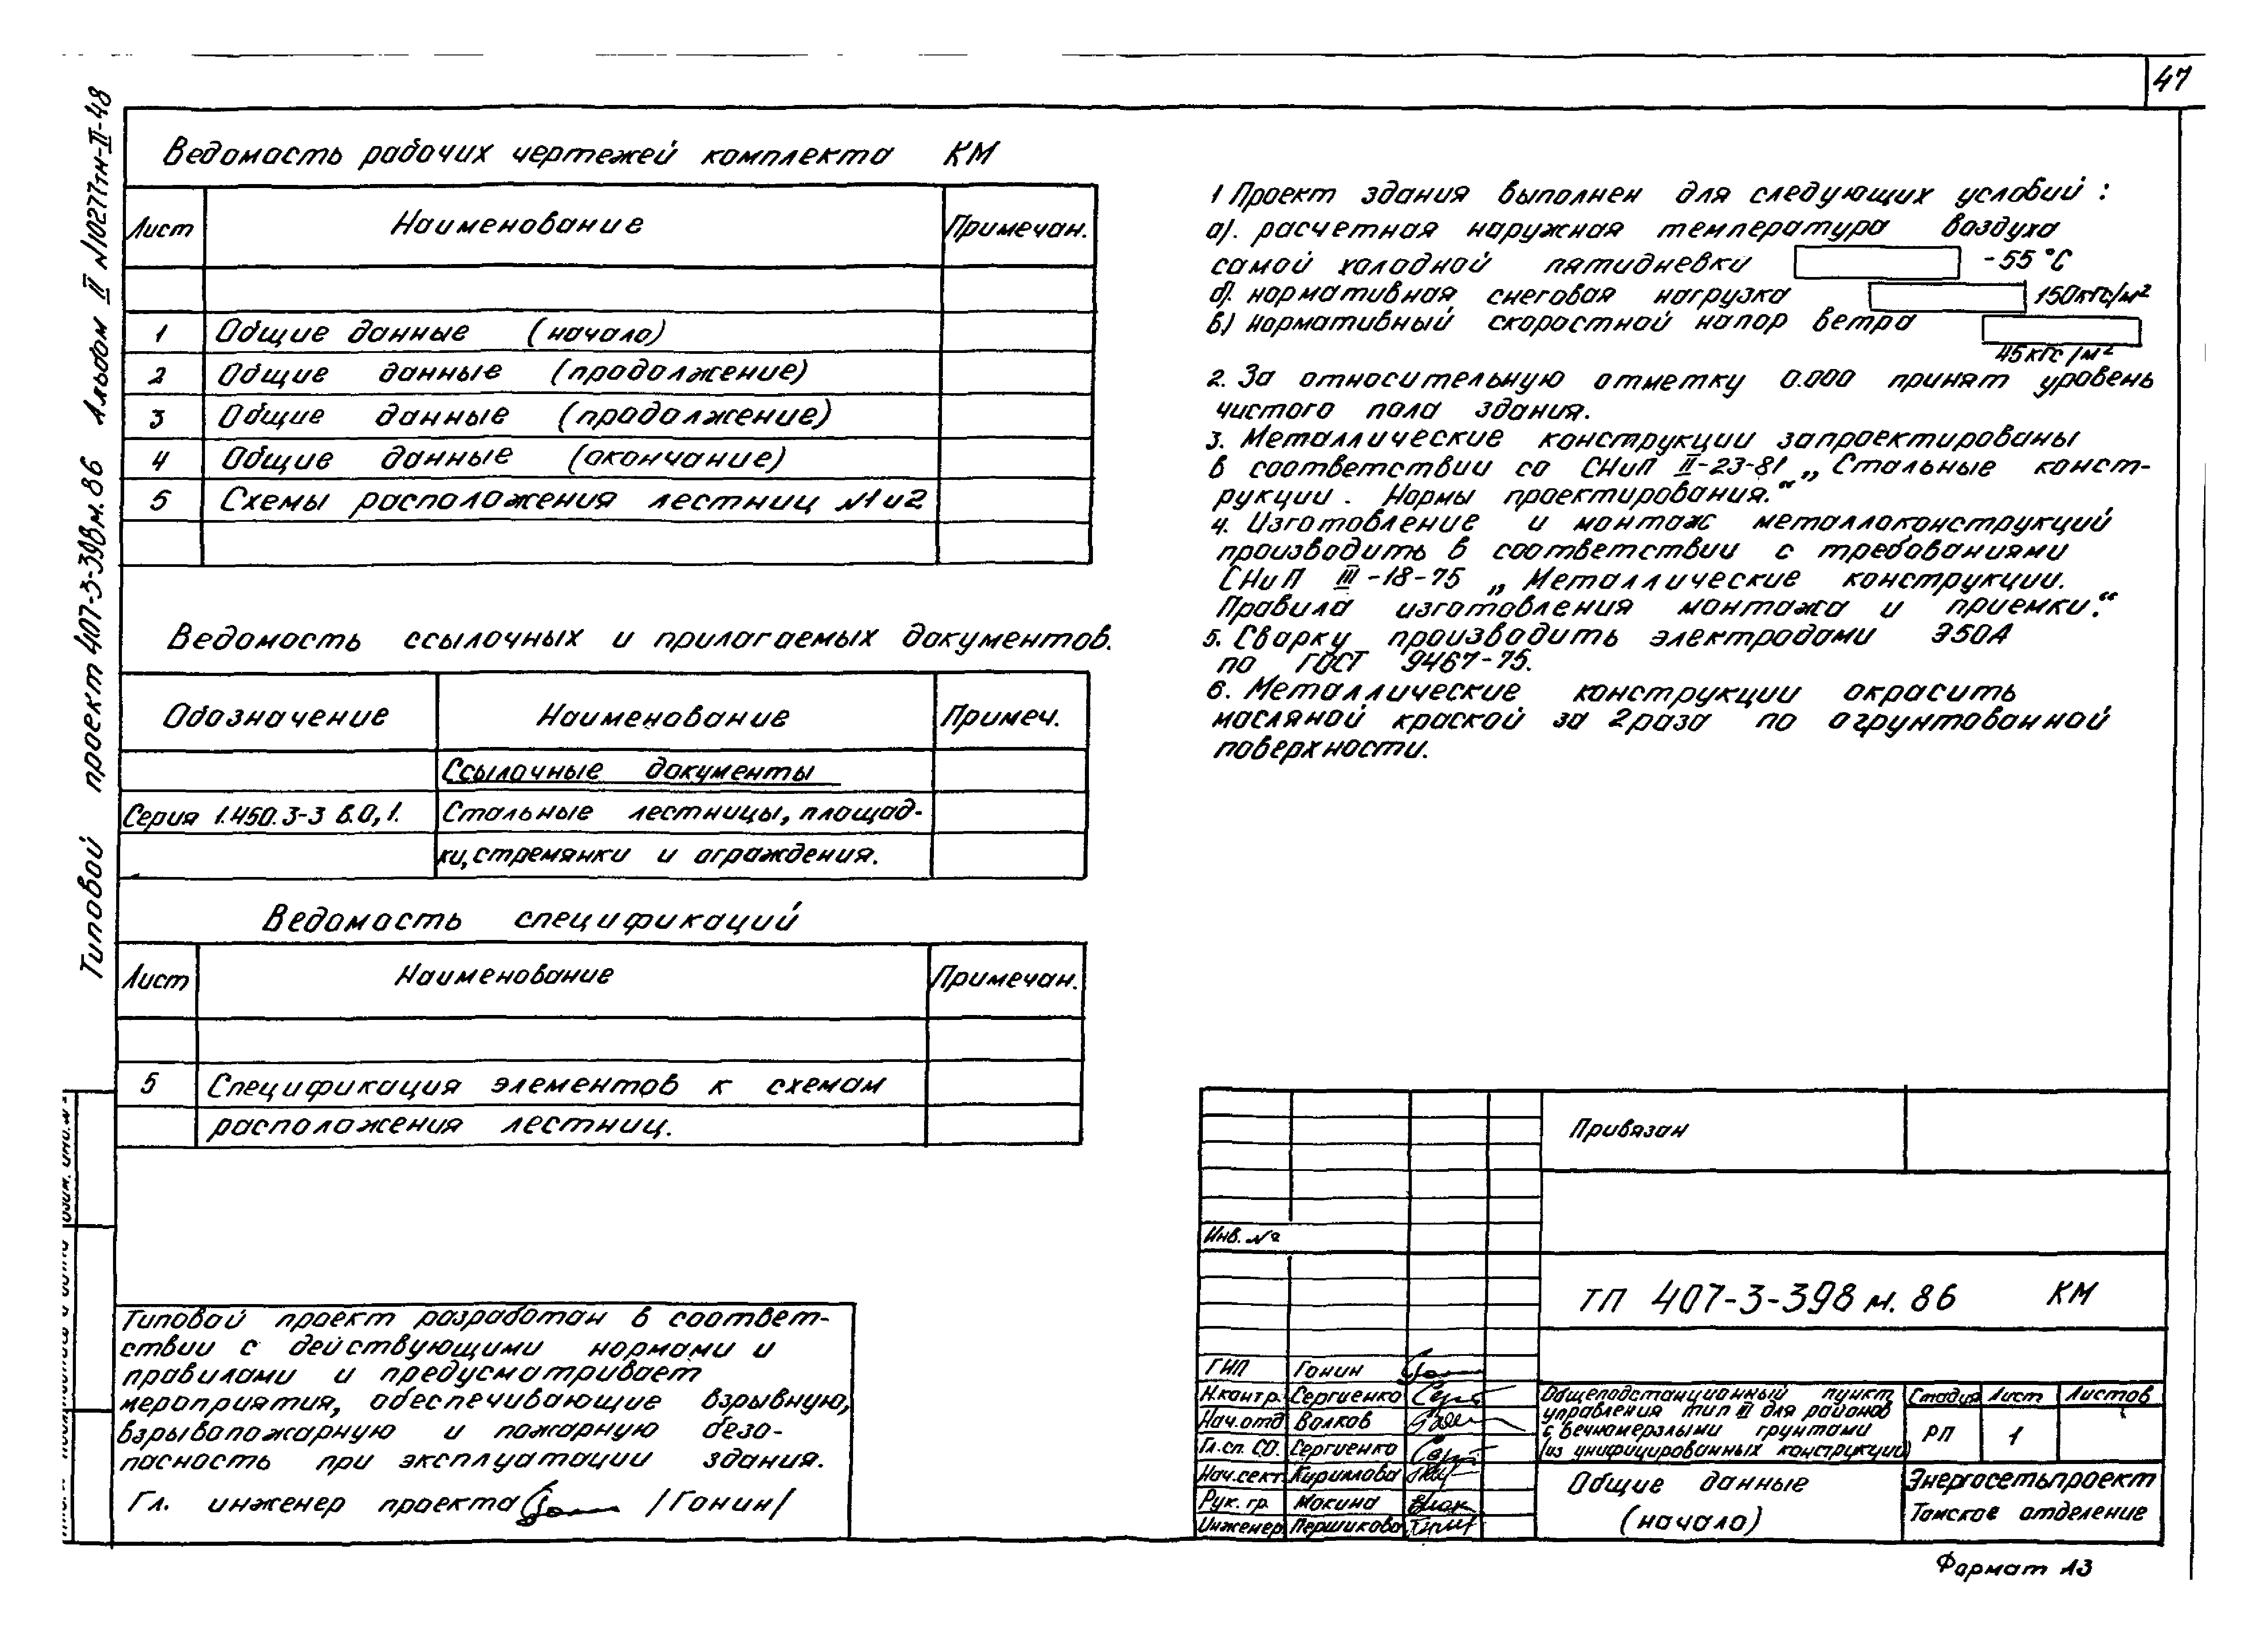 47
Типовой проект 407-3-398м.86 Альбом II №10277тм-II-48
Ведомость рабочих чертежей комплекта КМ
Лист Наименование Примечан.
1 Общие данные (начало)
2 Общие данные (продолжение)
3 Общие данные (продолжение)
4 Общие данные (окончание)
5 Схемы расположения лестниц №1и2
Ведомость ссылочных и прилагаемых документов.
Обозначение Наименование Примеч.
Ссылочные документы
Серия 1.450.3-3 в.0,1. Стальные лестницы, площад-
ки, стремянки и ограждения.
Ведомость спецификаций
Лист Наименование Примечан.
5 Спецификация элементов к схемам
расположения лестниц.
Типовой проект разработан в соответ-
ствии с действующими нормами и
правилами и предусматривает
мероприятия, обеспечивающие взрывную,
взрывопожарную и пожарную безо-
пасность при эксплуатации здания.
Гл. инженер проекта /Гонин/
1 Проект здания выполнен для следующих условий :
а). расчетная наружная температура воздуха
самой холодной пятидневки -55 °С
б). нормативная снеговая нагрузка 150кгс/м²
в) нормативный скоростной напор ветра
45кгс/м²
2. За относительную отметку 0.000 принят уровень
чистого пола здания.
3. Металлические конструкции запроектированы
в соответствии со СНиП II-23-81 „Стальные конст-
рукции. Нормы проектирования.“
4. Изготовление и монтаж металлоконструкций
производить в соответствии с требованиями
СНиП III-18-75 „Металлические конструкции.
Правила изготовления монтажа и приемки.“
5. Сварку производить электродами Э50А
по ГОСТ 9467-75.
6. Металлические конструкции окрасить
масляной краской за 2раза по огрунтованной
поверхности.
Привязан
Инв. №
ТП 407-3-398м.86 КМ
ГИП Гонин
Н.контр. Сергиенко
Нач.отд Волков
Гл.сп. СО. Сергиенко
Нач.сект. Кириллова
Рук. гр. Мокина
Инженер Першикова
Общеподстанционный пункт
управления тип III для районов
с вечномерзлыми грунтами
(из унифицированных конструкций)
Стадия Лист Листов
РП 1
Общие данные
(начало)
Энергосетьпроект
Томское отделение
Формат А3